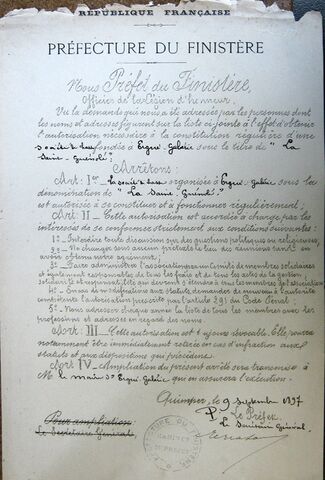 RÉPUBLIQUE FRANÇAISE
PRÉFECTURE DU FINISTÈRE
Nous Préfet du Finistère,
Officier de la Légion d'honneur,
Vu la demande qui nous a été adressée par les personnes dont
les noms et adresses figurent sur la liste ci-jointe à l'effet d'obtenir
l'autorisation nécessaire à la constitution régulière d'une
fondée à Ergué-Gabéric sous le titre de "La
Saint-Guénolé"
Arrêtons:
Art: I er organisée à Ergué-Gabéric sous la
dénomination de "La Saint Guénolé"
est autorisée à se constituer et à fonctionner régulièrement;
Art: II _ Cette autorisation est accordée à charge par les
intéressés de se conformer strictement aux conditions suivantes:
1º_ Interdire toute discussion sur des questions politiques ou religieuses;
2º_ Ne changer sous aucun prétexte le lieu des réunions sans en
avoir obtenu notre agrément;
3º_ Faire administrer l'association par un Comité de membres solidaires
et également responsables de tous les faits et de tous les actes de la gestion
4º_ En cas de modifications aux statuts, demander de nouveau à l'autorité
compétente l'autorisation prescrite par l'article 291 du Code Pénal:
5º_ Nous adresser chaque année la liste de tous les membres avec les
professions et adresses en regard des noms.
Art: III _ Cette autorisation est toujours révocable. Elle pourra
notamment être immédiatement retirée en cas d'infraction aux
statuts et aux dispositions qui précèdent.
Art IV _ Ampliation du présent arrêté sera transmise à
M. le maire d'Ergué-Gabéric qui en assurera l'exécution.
Quimper, le 9 septembre 1897
P. Le Préfet,
Le Secrétaire Général
Pour ampliation:
Le Secrétaire Général,
PRÉFECTURE DU FINISTÈRE
CABINET
DU PRÉFET